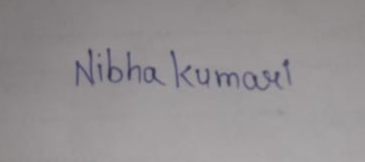 Nibha kumari